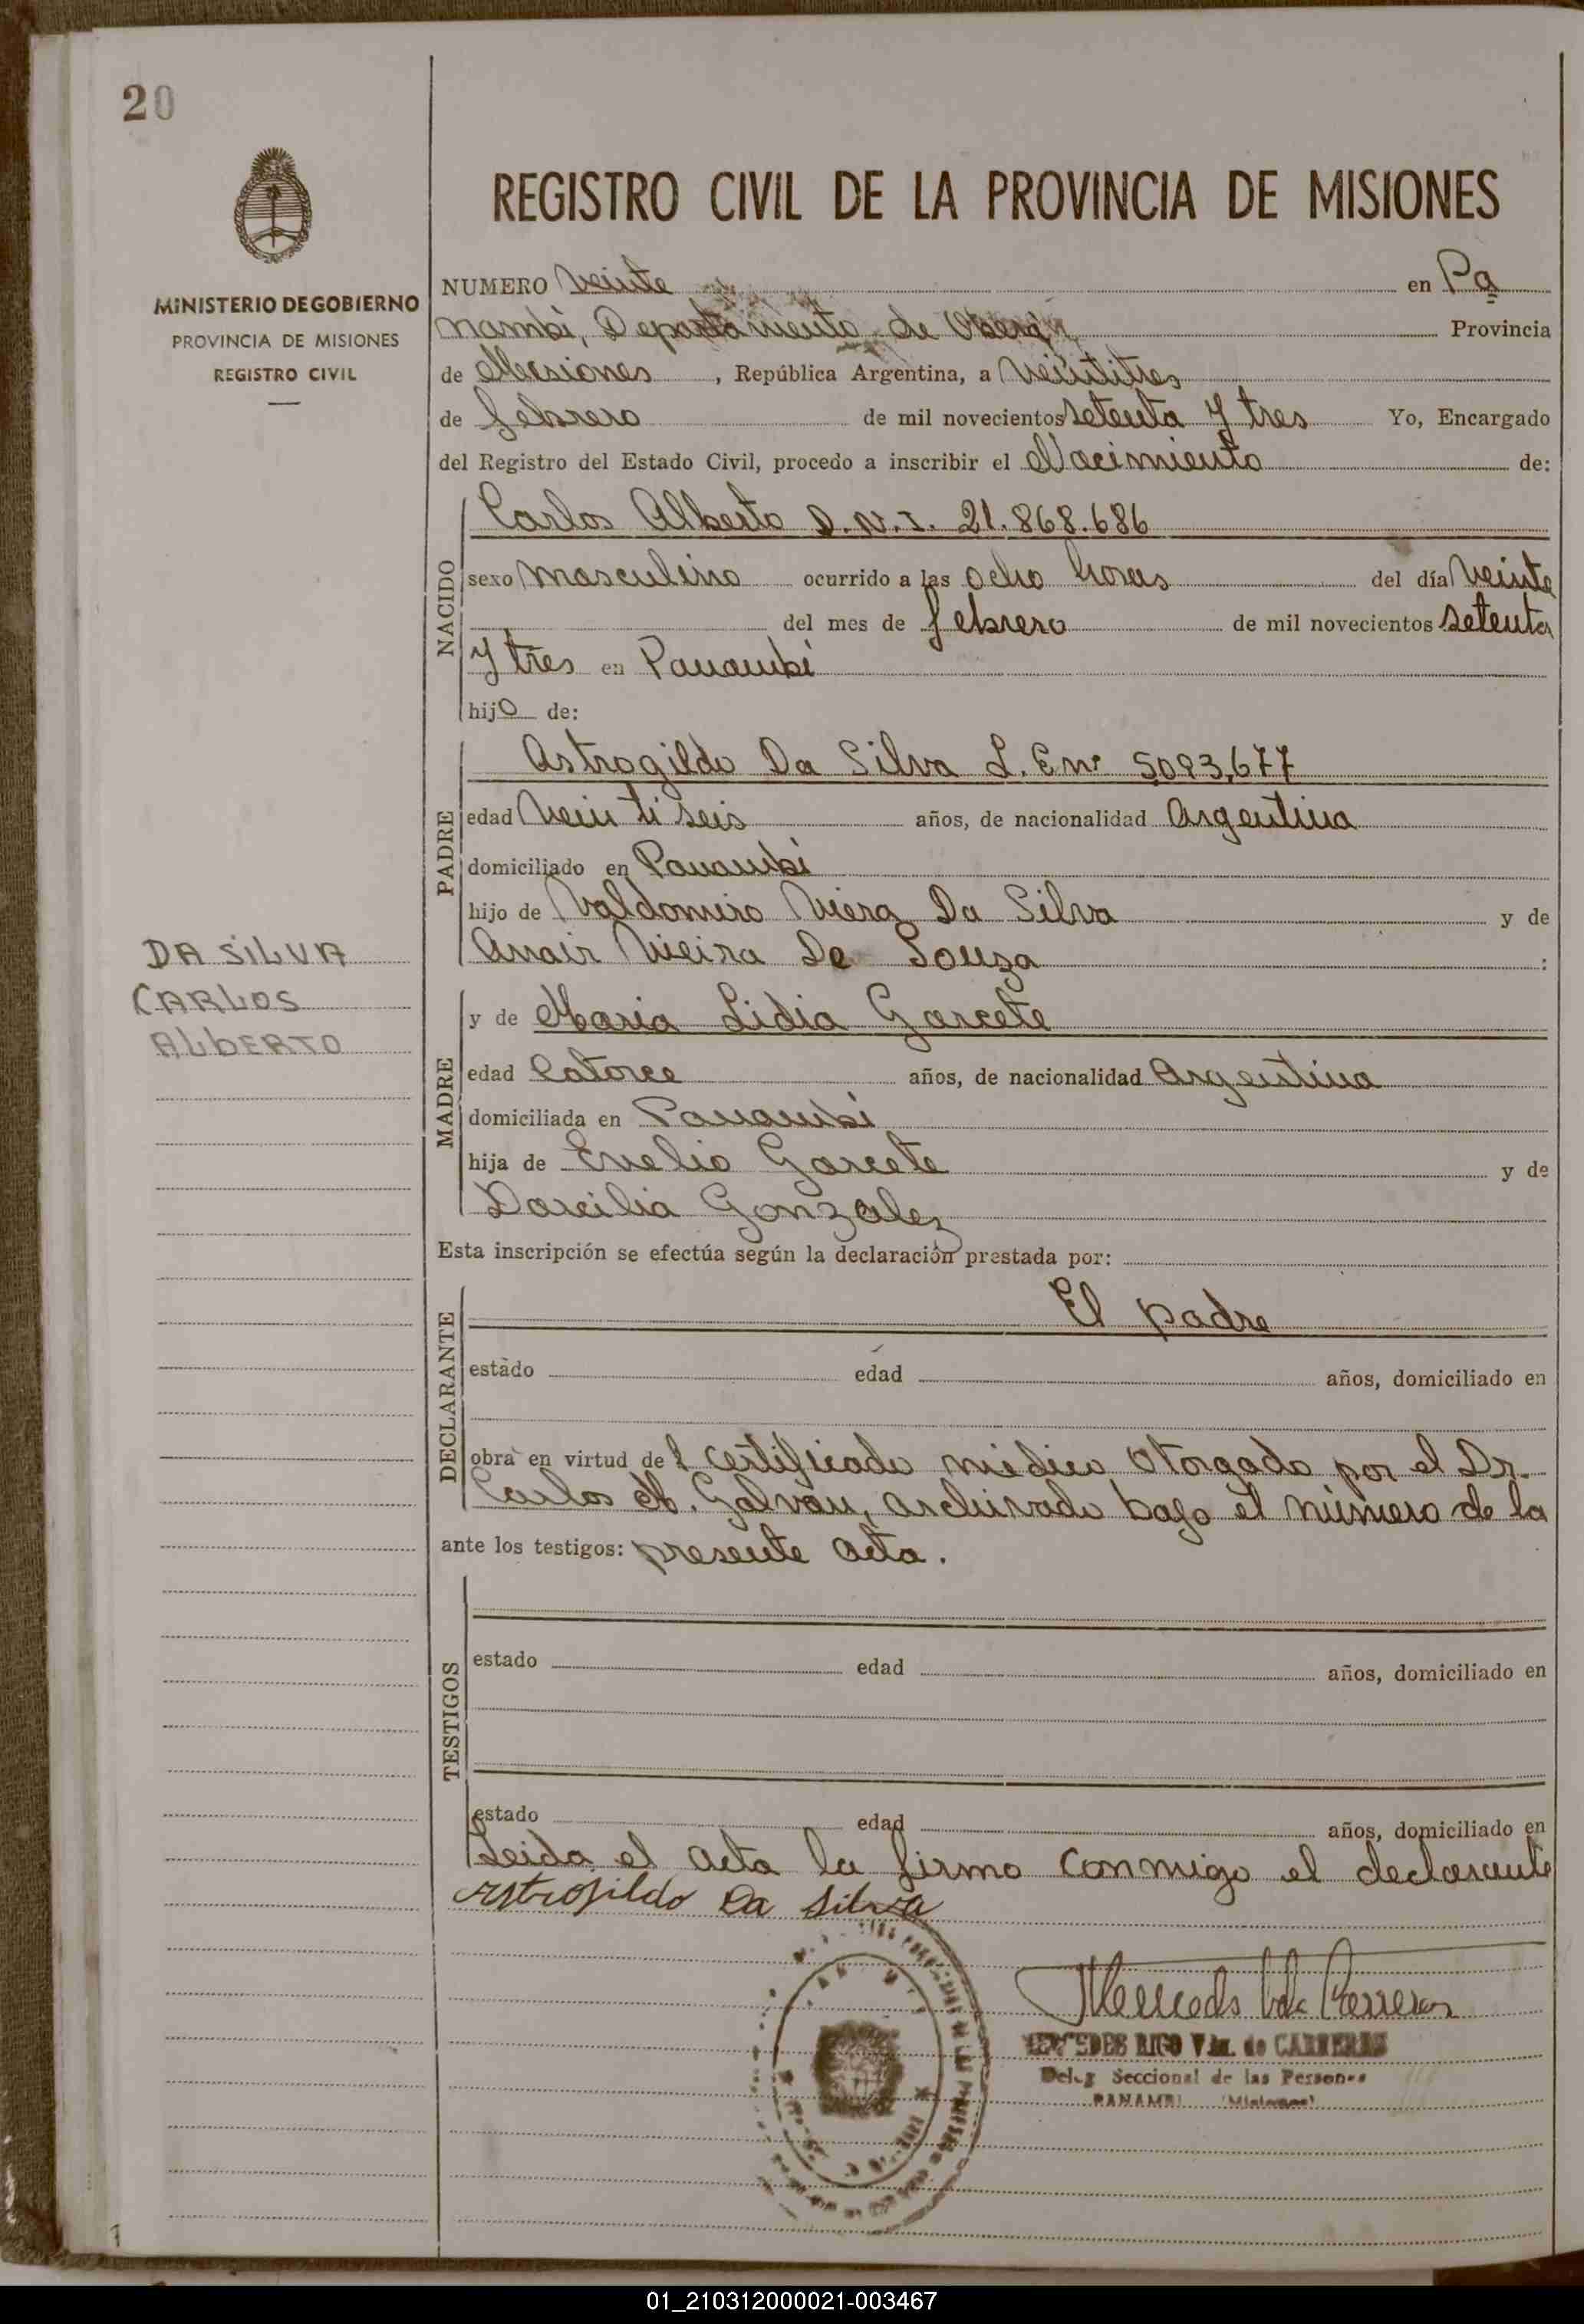 20
REGISTRO CIVIL DE LA PROVINCIA DE MISIONES
MINISTERIO DE GOBIERNO
PROVINCIA DE MISIONES
REGISTRO CIVIL
NUMERO Veinte en Pa
nambí, Departamento de Oberá, Provincia
de Misiones, República Argentina, a Veintitres
de febrero de mil novecientos setenta y tres Yo, Encargado
del Registro del Estado Civil, procedo a inscribir el Nacimiento de:
NACIDO
Carlos Alberto D.N.I. 21.868.686
sexo masculino ocurrido a las ocho horas del día Veinte
del mes de febrero de mil novecientos setenta
y tres en Panambí
hijo de:
PADRE
Astrogildo Da Silva L. E nº 5093,677
edad Veintiseis años, de nacionalidad Argentina
domiciliado en Panambí
hijo de Valdomiro Viera Da Silva y de
Anair Vieira De Souza :
DA SILVA
CARLOS
ALBERTO
MADRE
y de Maria Lidia Garcete
edad Catorce años, de nacionalidad Argentina
domiciliada en Panambí
hija de Evelio Garcete y de
Darcilia Gonzalez
Esta inscripción se efectúa según la declaración prestada por:
DECLARANTE
El padre
estado edad años, domiciliado en
obra en virtud del certificado médico otorgado por el Dr.
Carlos M. Galvan, archivado bajo el número de la
ante los testigos: presente acta.
TESTIGOS
estado edad años, domiciliado en
estado edad años, domiciliado en
Leida el acta la firma conmigo el declarante
Astrogildo Da Silva
MERCEDES RIGO Vda. de CARRERAS
Deleg Seccional de las Personas
PANAMBI (Misiones)
01_210312000021-003467